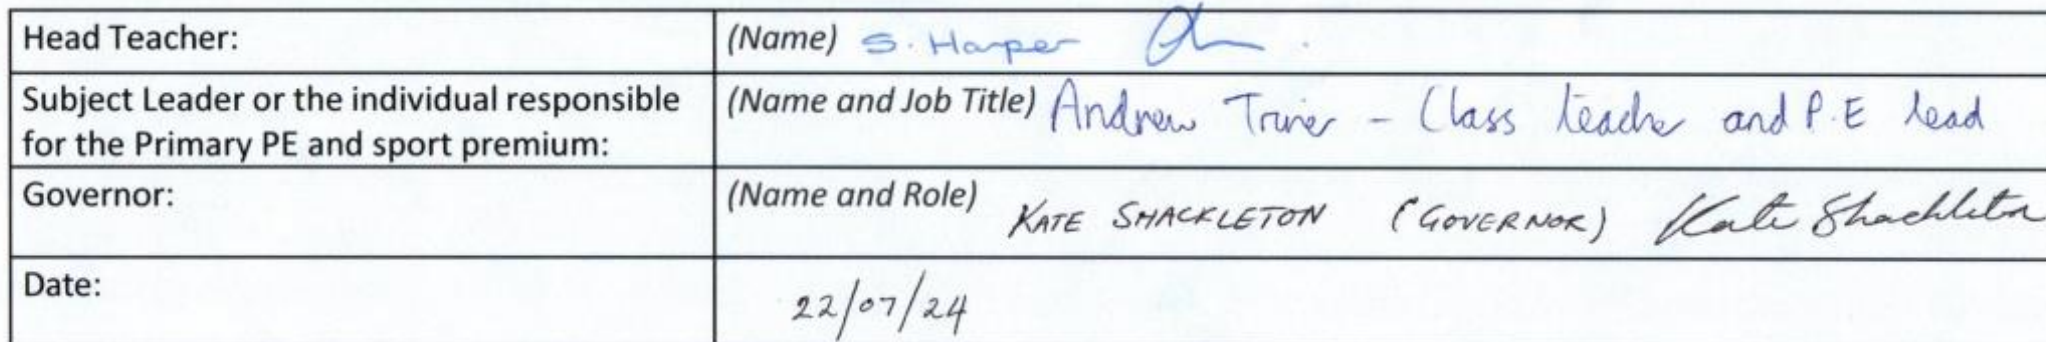 Head Teacher: (Name) S. Harper
Subject Leader or the individual responsible for the Primary PE and sport premium: (Name and Job Title) Andrew Triner - Class teacher and P.E lead
Governor: (Name and Role) KATE SHACKLETON (GOVERNOR) Kate Shackleton
Date: 22/07/24